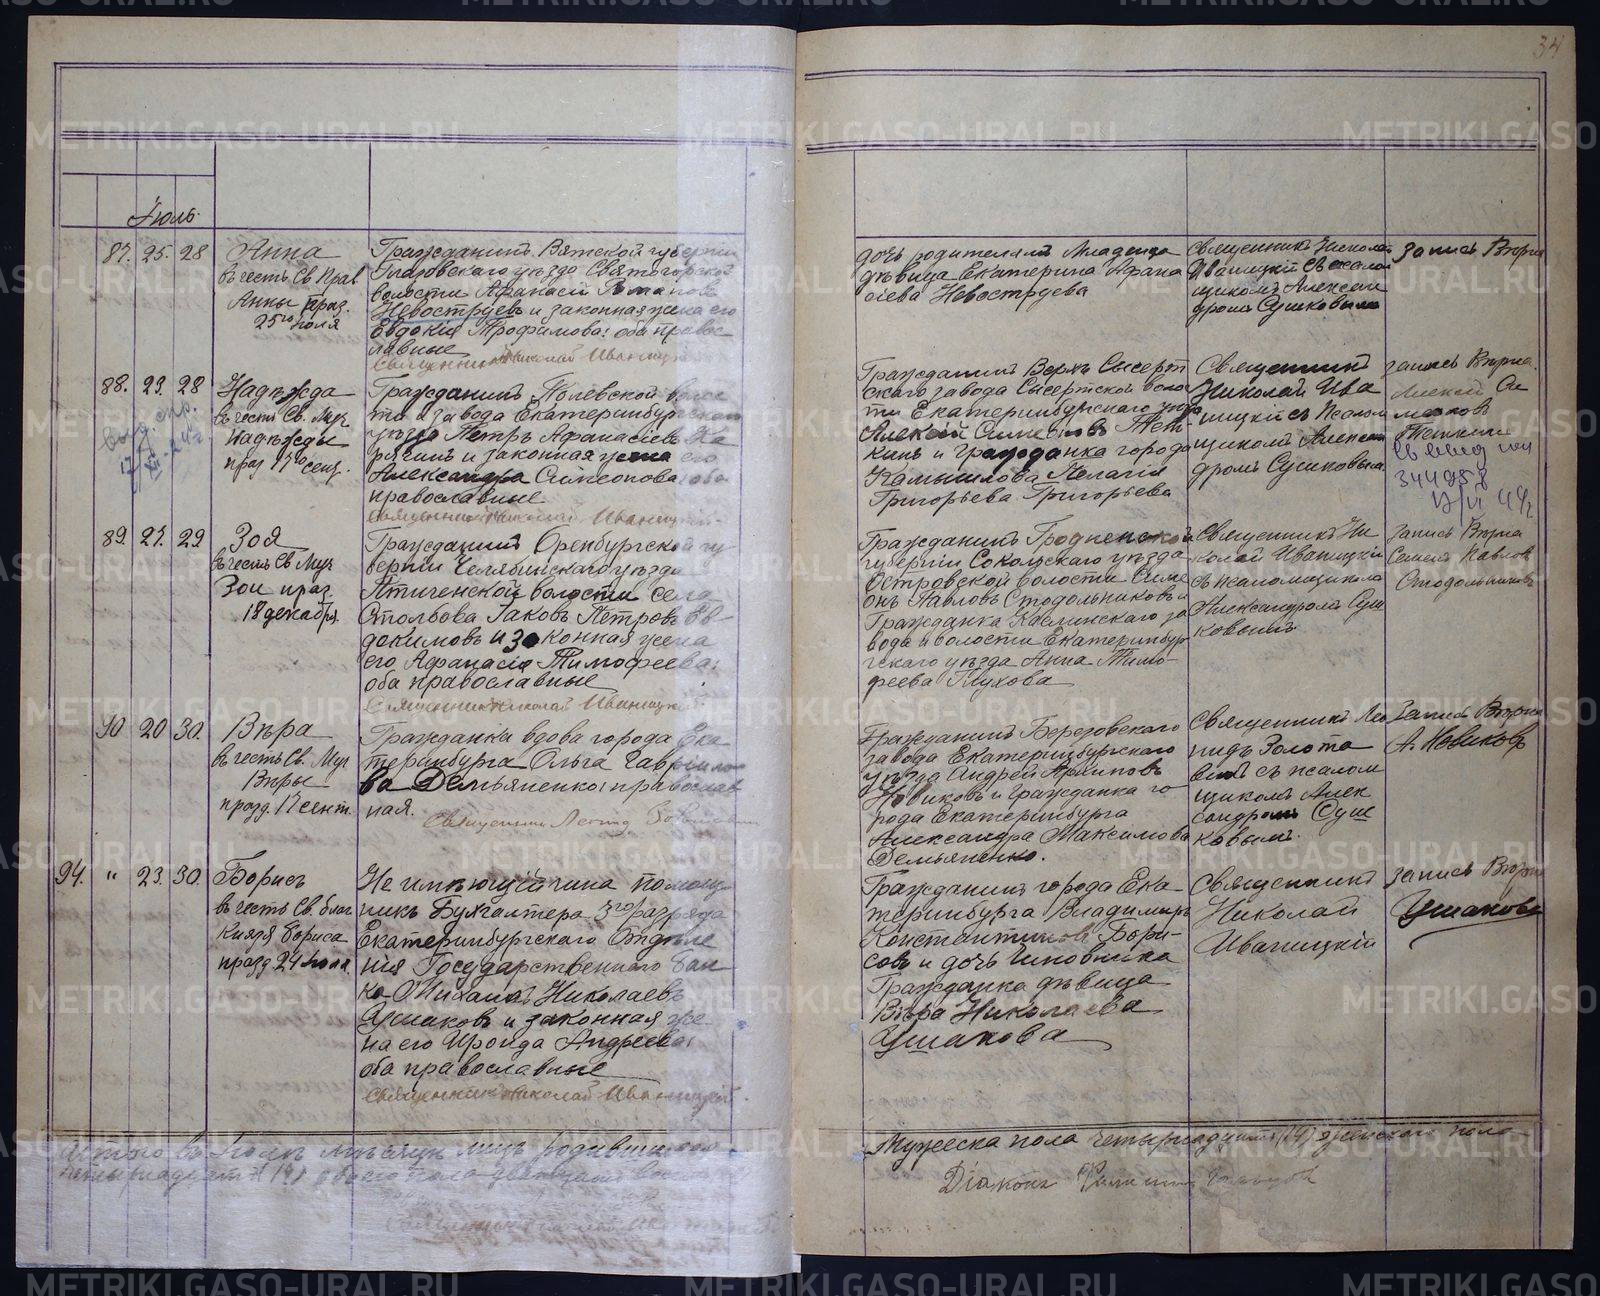 34
Іюль.
87. 25. 28
Анна
въ честь Св. Прав.
Анны праз.
25го Іюля
Гражданинъ Вятской губерніи
Глазовскаго уѣзда Святогорской
волости Афанасій
Невоструевъ и законная жена его
Евдокія Трофимова: оба право-
славные
Священникъ Николай Иваницкій
дочь родителямъ Младенца
дѣвица Екатерина Афана
сіева Невоструева
Священникъ Николай
Иваницкій съ псалом
щикомъ Александ
дромъ Сушковымъ
Запись Вѣрна
88. 23. 28
Надѣжда
въ честь Св. Муч.
Надѣжды
праз 17го сент.
Гражданинъ Полевской волос
ти и завода Екатеринбургскаго
уѣзда Петръ Афанасіевъ Ка
и законная жена его
Александра Симеонова: оба
православные
Священникъ Николай Иваницкій
Гражданинъ Верхъ Сысерт
скаго завода Сысертской волос
ти Екатеринбургскаго уѣзда
Алексій Симеоновъ Тет
кинъ и гражданка города
Камышлова Пелагія
Григорьева Григорьева
Священникъ
Николай Ива
ницкій съ Псалом
щикомъ Алексан
дромъ Сушковымъ
запись Вѣрна.
Алексѣй Си
89. 27. 29
Зоя
въ честь Св Муч
Зои праз
18 декабря
Гражданинъ Оренбургской гу
берніи Челябинскаго уѣзда
Птиченской волости села
Столбова Іаковъ Петровъ Ев
докимовъ и законная жена
его Афанасія Тимофеева:
оба православные
Священникъ Николай Иваницкій
Гражданинъ Гродненской
губерніи Сокольскаго уѣзда
Островской волости Симе
онъ Павловъ Стодольниковъ и
Гражданка Каслинскаго за
вода и волости Екатеринбур
гскаго уѣзда Анна Тимо-
феева Глухова
Священникъ Ни
колай Иваницкій
съ псаломщикомъ
Александромъ Суш
ковымъ
Запись Вѣрна
Семенъ Павлов
Стодольниковъ
90 20 30.
Вѣра
въ честь Св. Муч
Вѣры
празд. 17 сент.
Гражданка вдова города Ека
теринбурга Ольга Гаврило
ва Демьяненко: православ
ная.
Священникъ Леонид
Гражданинъ Березовскаго
завода Екатеринбургскаго
уѣзда Андрей Архиповъ
Новиковъ и Гражданка го
рода Екатеринбурга
Александра Максимова
Демьяненко.
Священникъ Лео
нидъ Золота
винъ съ псалом
щикомъ Алек
сандромъ Суш
ковымъ.
Запись Вѣрна
А. Новиковъ
94. " 23. 30.
Борисъ
въ честь Св. благ
Князя Бориса
празд. 24 Іюля
Не имѣющій чина помощ-
никъ Бухгалтера 3го разряда
Екатеринбургскаго Отдѣле
нія Государственнаго Бан
ка Михаилъ Николаевъ
Ушаковъ и законная же
на его Ираида Андреева:
оба православные
Священникъ Николай Иваницкій.
Гражданинъ города Ека-
теринбурга Владимиръ
Константиновъ Бори-
совъ и дочь чиновника
Гражданка дѣвица
Вѣра Николаева
Ушакова
Священникъ
Николай
Иваницкій
запись Вѣрна
Ушаковъ
Итого въ Іюлѣ мѣсяцѣ лицъ родившихся
Мужеска пола четырнадцать (14) женскаго пола
четырнадцать (14) обоего пола
Діаконъ
METRIKI.GASO-URAL.RU